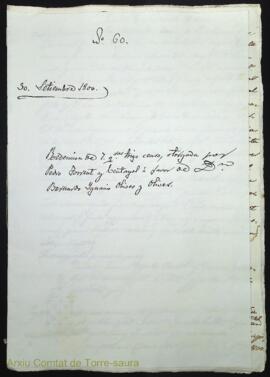 Nº 60.
30. Setiembre 1800.
Redencion de 7 qns trigo censo, otorgada por
Pedro Torrent y á favor de Dn
Bernardo Ygnacio Olives y Olives.
Arxiu Comtat de Torre-saura